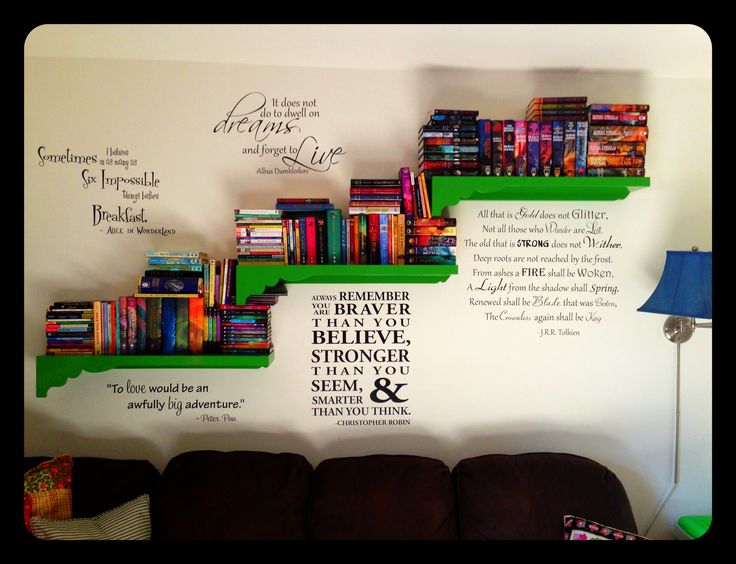 It does not
do to dwell on
dreams,
and forget to
Live
-Albus Dumbledore
I believe
Sometimes in as many as
Six Impossible
things before
Breakfast.
~ Alice in Wonderland
All that is Gold does not Glitter,
Not all those who Wander are Lost.
The old that is STRONG does not Wither,
Deep roots are not reached by the frost.
From ashes a FIRE shall be Woken,
A Light from the shadow shall Spring.
Renewed shall be Blade that was Broken,
The Crownless again shall be King
-J.R.R. Tolkien
ALWAYS REMEMBER
YOU ARE BRAVER
THAN YOU
BELIEVE,
STRONGER
THAN YOU
SEEM, &
SMARTER
THAN YOU THINK.
-CHRISTOPHER ROBIN
"To love would be an
awfully big adventure."
- Peter Pan